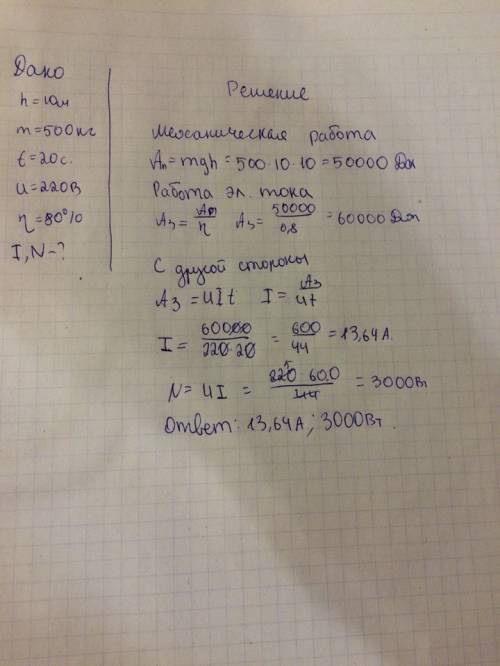 Дано
h = 10м
m = 500кг
t = 20с.
u = 220В
η = 80%
I, N - ?
Решение
Механическая работа
Aп = mgh = 500·10·10 = 50000 Дж
Работа эл. тока
Aз = Aп/η Aз = 50000/0,8 = 60000 Дж
С другой стороны
Aз = uIt I = Aз/ut
I = 60000/220·20 = 600/44 = 13,64 А.
N = uI = 220·600/44 = 3000Вт
Ответ: 13,64 А; 3000Вт.